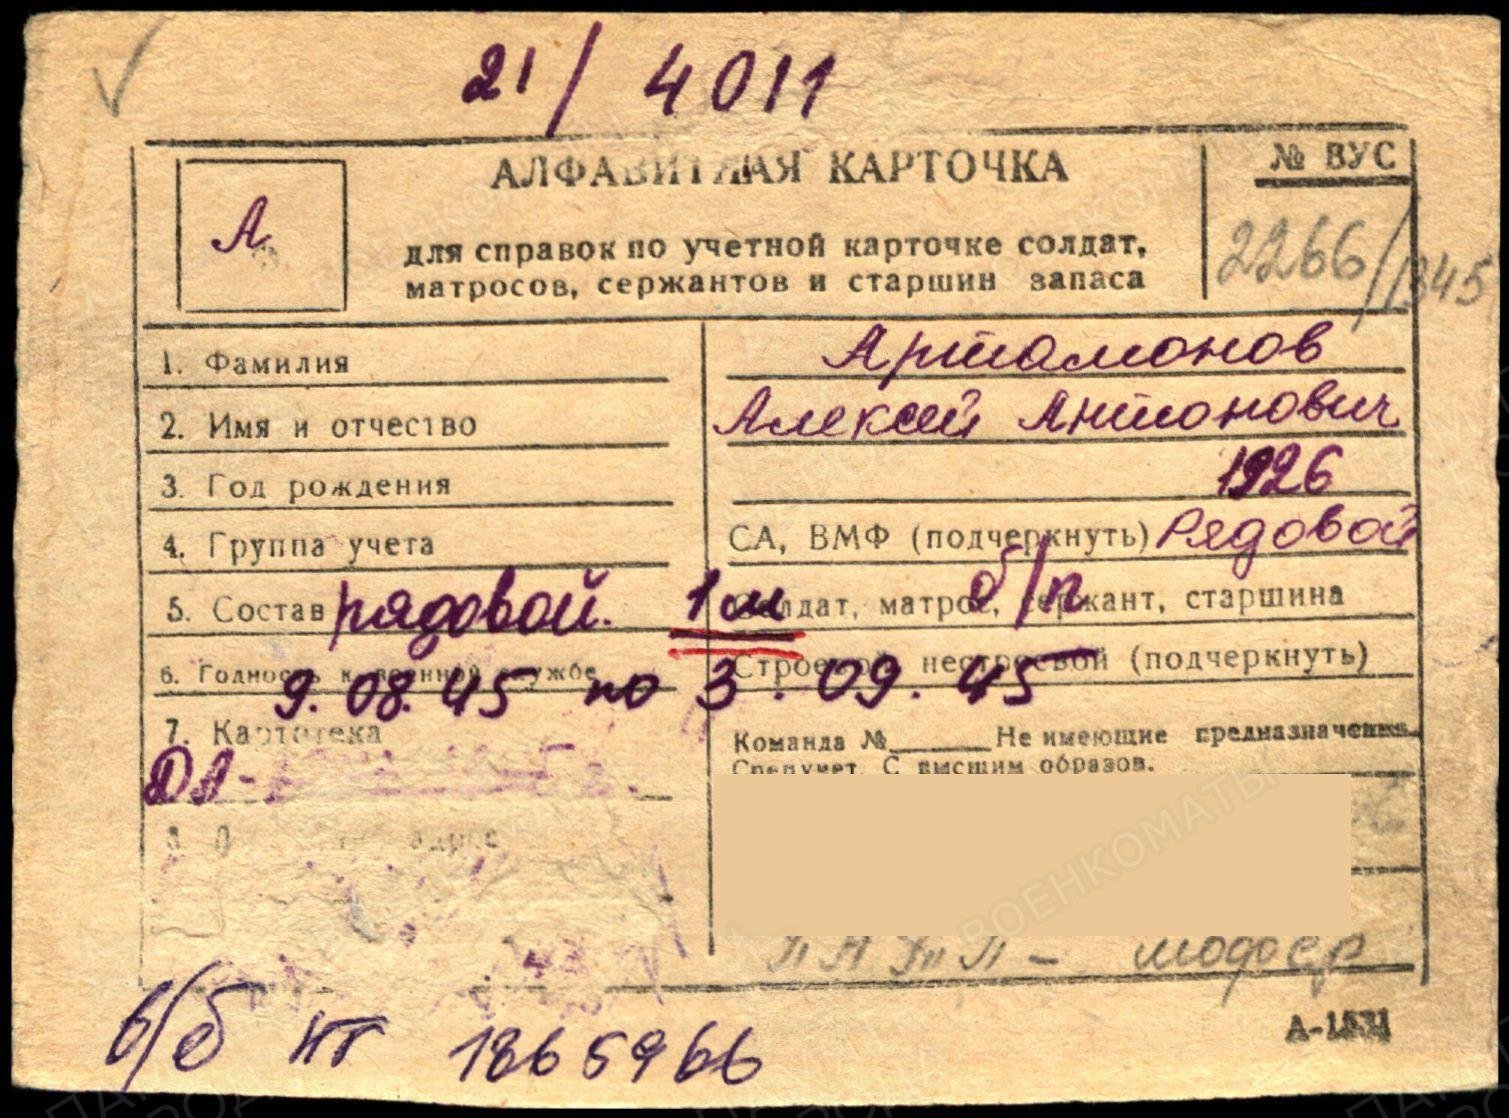 21/4011
АЛФАВИТНАЯ КАРТОЧКА
№ ВУС
А
для справок по учетной карточке солдат,
матросов, сержантов и старшин запаса
2266/1345
1. Фамилия Артамонов
2. Имя и отчество Алексей Антонович
3. Год рождения 1926
4. Группа учета СА, ВМФ (подчеркнуть) Рядовой
5. Состав рядовой. 1 м Солдат, матрос, сержант, старшина б/п
6. Годность к военной службе Строевой, нестроевой (подчеркнуть)
9.08.45 по 3.09.45
7. Картотека
Команда № Не имеющие предназначения
С высшим образов.
ДА-
адрес
шофер
в/б НГ 1865966
А-1531
ВОЕНКОМАТЫ